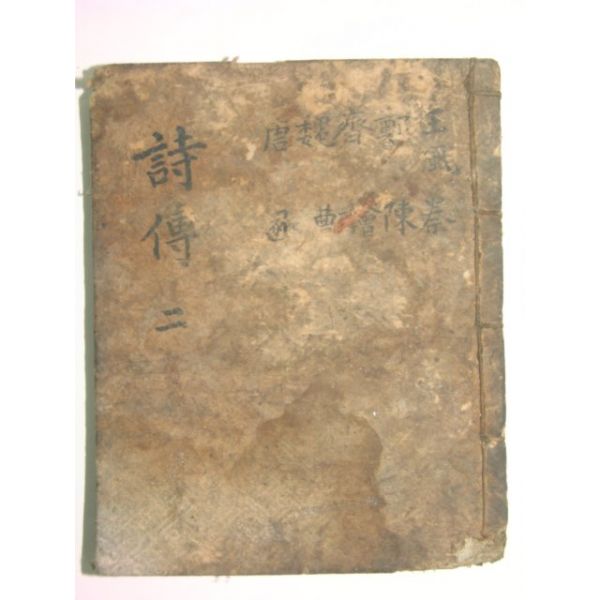 王風鄭齊魏唐
秦陳檜
詩傳 二